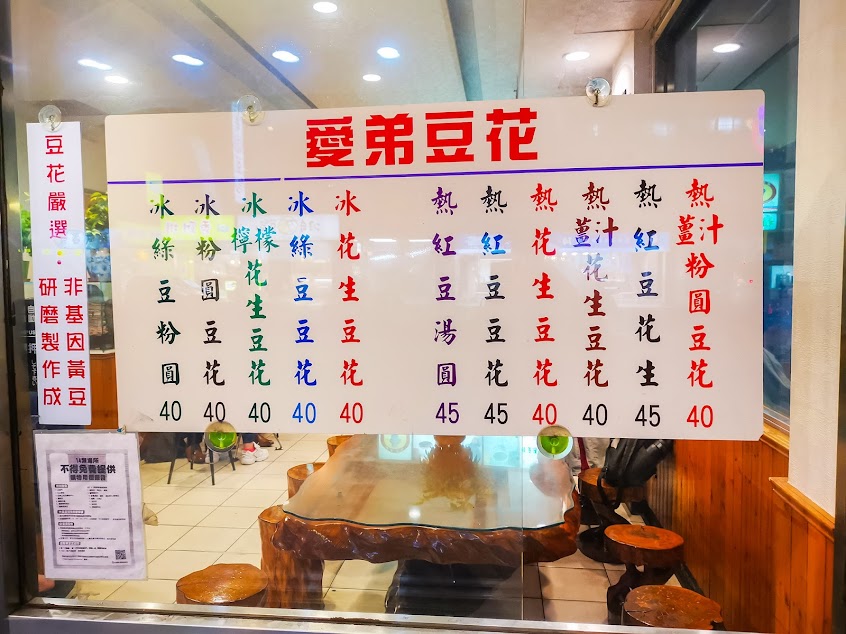 愛弟豆花
熱薑汁粉圓豆花 40
熱紅豆花生 45
熱薑汁花生豆花 40
熱花生豆花 40
熱紅豆豆花 45
熱紅豆湯圓 45
冰花生豆花 40
冰綠豆豆花 40
冰檸檬花生豆花 40
冰粉圓豆花 40
冰綠豆粉圓 40
豆花嚴選・
非基因黃豆
研磨製作成
不得免費提供